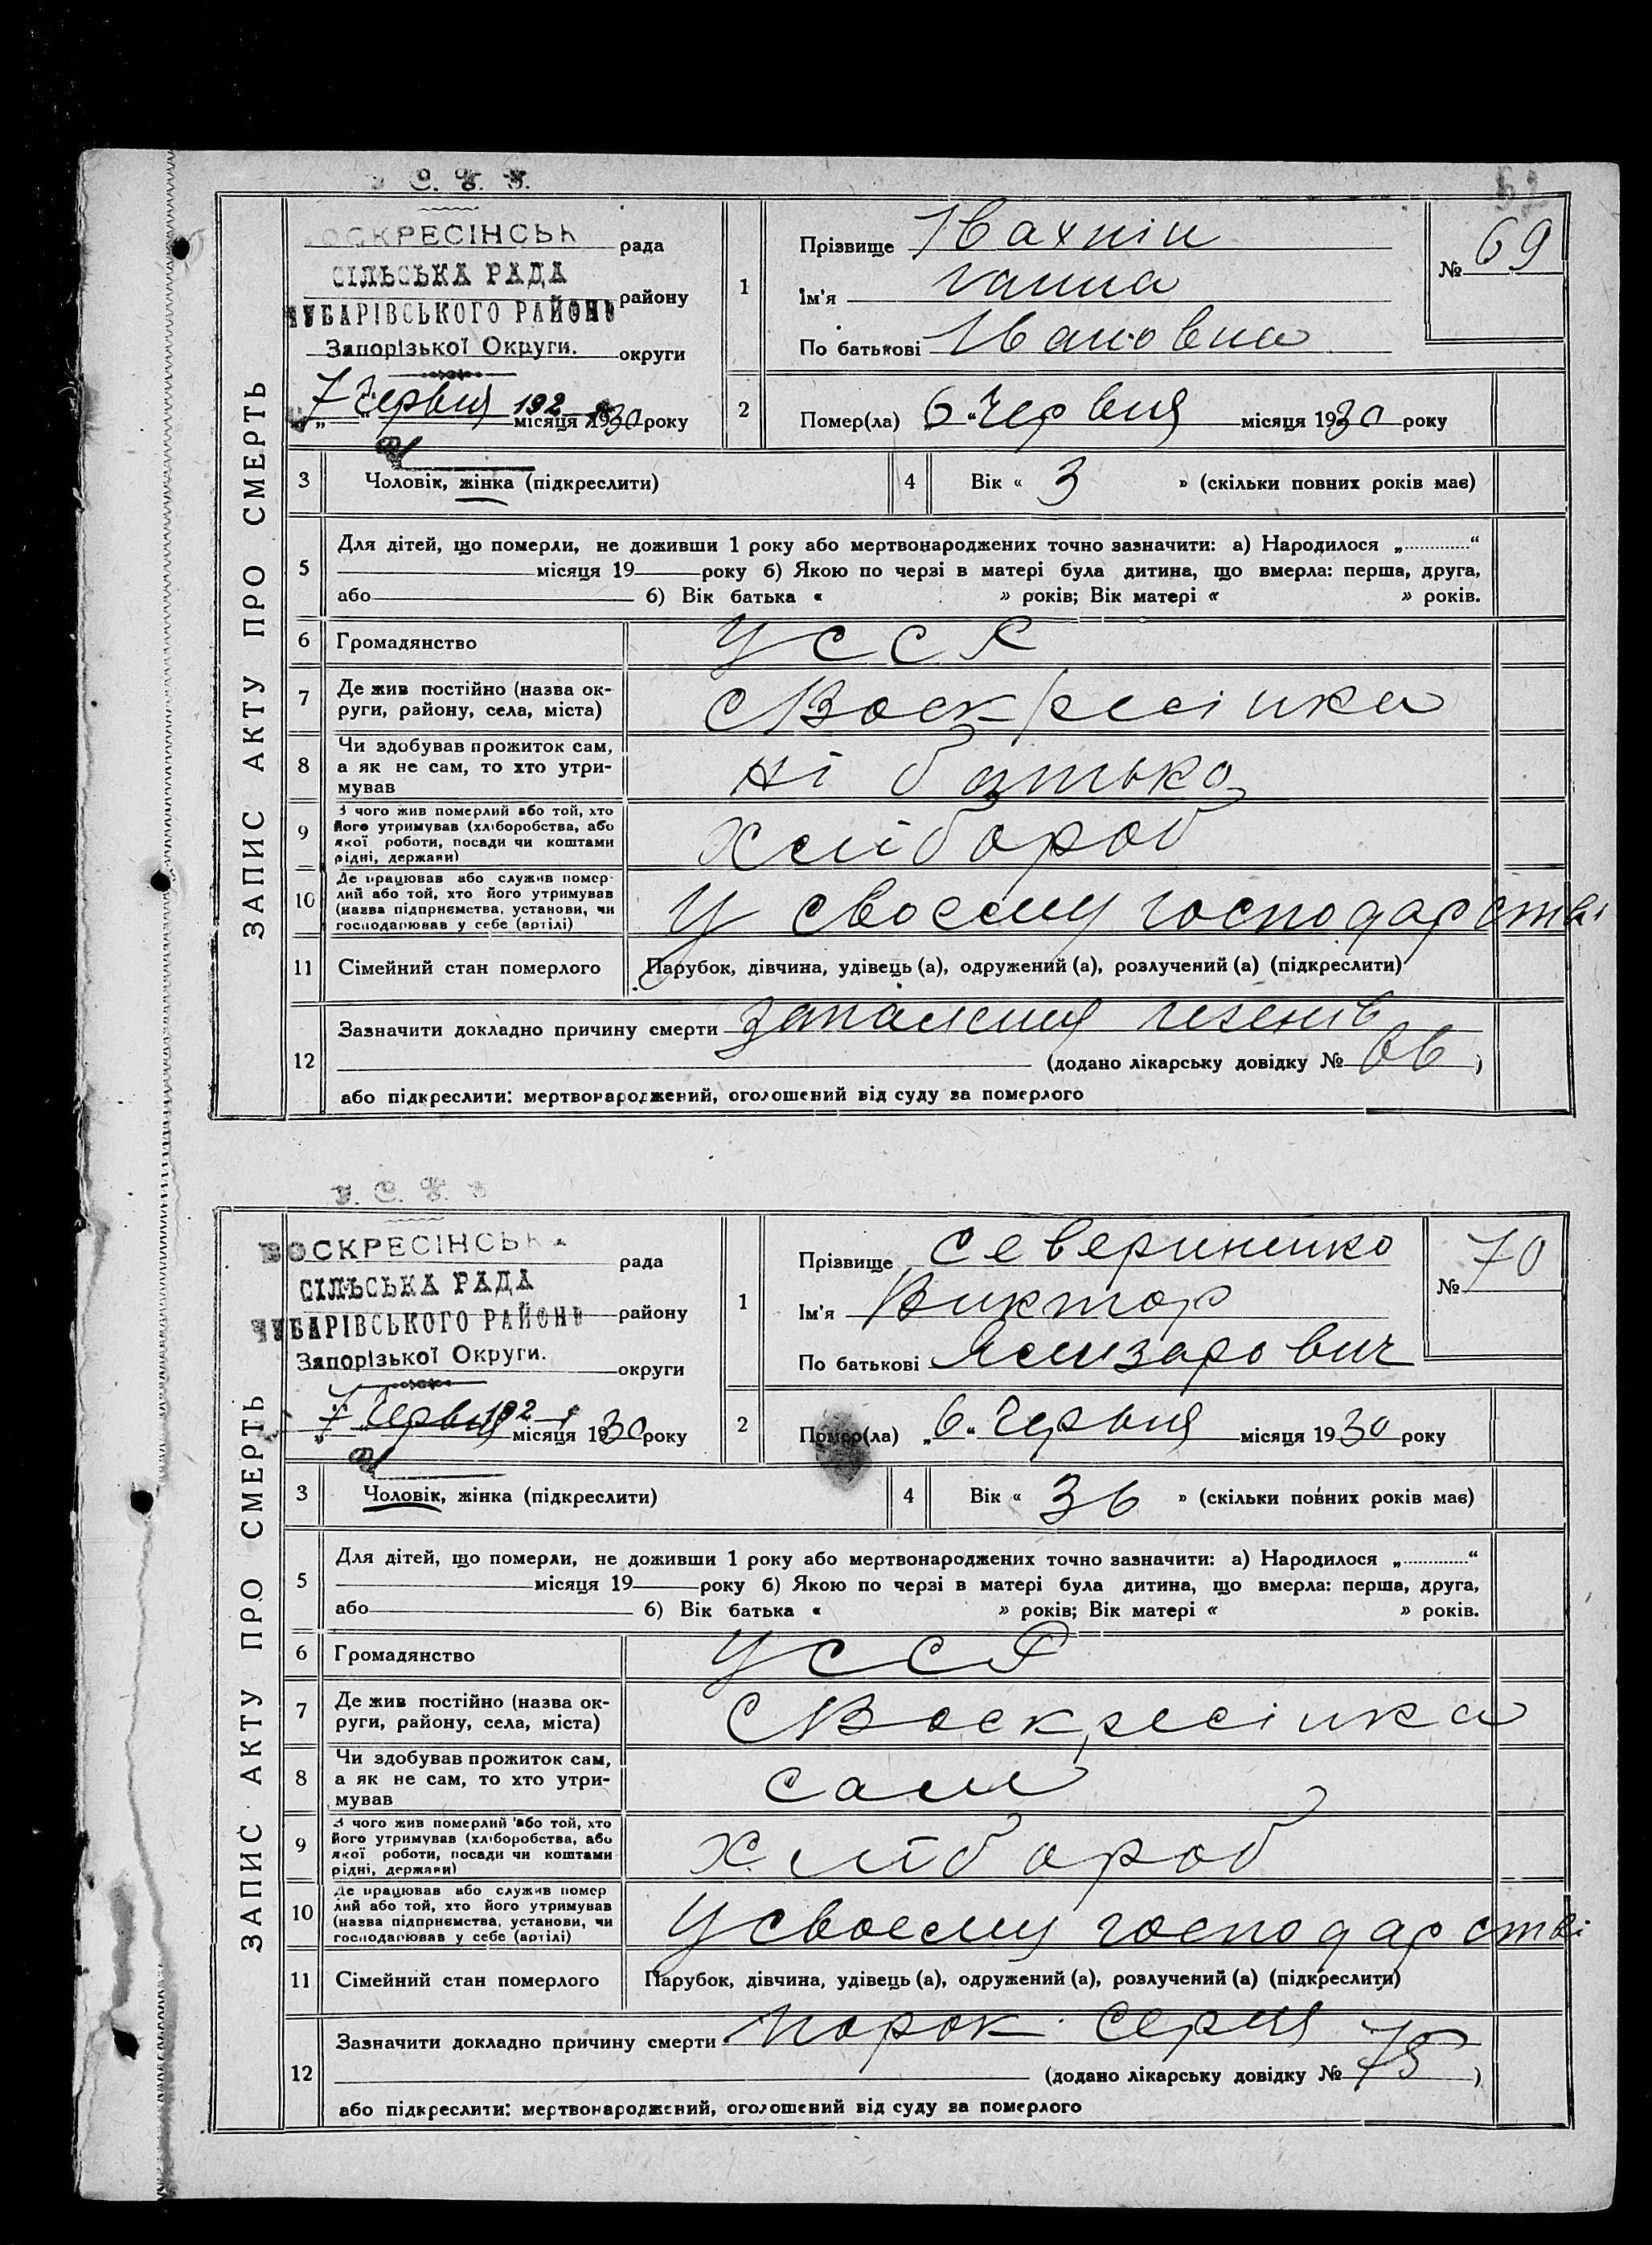 У. С. Р. Р.
62
ВОСКРЕСІНСЬК рада
СІЛЬСЬКА РАДА
ЧУБАРІВСЬКОГО РАЙОНУ району
Запорізької Округи. округи
„7“ Червня 192 місяця 1930 року
ЗАПИС АКТУ ПРО СМЕРТЬ
1 Прізвище Івахнін
Ім'я Ганна
По батькові Івановна
№ 69
2 Помер(ла) „6“ Червня місяця 1930 року
3 Чоловік, жінка (підкреслити)
4 Вік « 3 » (скільки повних років має)
5 Для дітей, що померли, не доживши 1 року або мертвонароджених точно зазначити: а) Народилося „............“
місяця 19 року б) Якою по черзі в матері була дитина, що вмерла: перша, друга,
або б) Вік батька « » років; Вік матері « » років.
6 Громадянство УССР
7 Де жив постійно (назва ок-
руги, району, села, міста) с Воскресінка
8 Чи здобував прожиток сам,
а як не сам, то хто утри-
мував
Ні батько
9 З чого жив померлий або той, хто
його утримував (хліборобства, або
якої роботи, посади чи коштами
рідні, держави)
Хлібороб
10 Де працював або служив помер-
лий або той, хто його утримував
(назва підприємства, установи, чи
господарював у себе (артілі)
У своєму господарстві
11 Сімейний стан померлого Парубок, дівчина, удівець (а), одружений (а), розлучений (а) (підкреслити)
12 Зазначити докладно причину смерти запалення
(додано лікарську довідку № 66 )
або підкреслити: мертвонароджений, оголошений від суду за померлого
У. С. Р. Р.
ВОСКРЕСІНСЬКА рада
СІЛЬСЬКА РАДА
ЧУБАРІВСЬКОГО РАЙОНУ району
Запорізької Округи. округи
„7“ Червня 192 місяця 1930 року
ЗАПИС АКТУ ПРО СМЕРТЬ
1 Прізвище Севериненко
Ім'я Виктор
По батькові Ялизарович
№ 70
2 Помер(ла) „6“ Червня місяця 1930 року
3 Чоловік, жінка (підкреслити)
4 Вік « 36 » (скільки повних років має)
5 Для дітей, що померли, не доживши 1 року або мертвонароджених точно зазначити: а) Народилося „............“
місяця 19 року б) Якою по черзі в матері була дитина, що вмерла: перша, друга,
або б) Вік батька « » років; Вік матері « » років.
6 Громадянство УССР
7 Де жив постійно (назва ок-
руги, району, села, міста) с Воскресінка
8 Чи здобував прожиток сам,
а як не сам, то хто утри-
мував
сам
9 З чого жив померлий або той, хто
його утримував (хліборобства, або
якої роботи, посади чи коштами
рідні, держави)
Хлібороб
10 Де працював або служив помер
лий або той, хто його утримував
(назва підприємства, установи, чи
господарював у себе (артілі)
У своєму господарстві
11 Сімейний стан померлого Парубок, дівчина, удівець (а), одружений (а), розлучений (а) (підкреслити)
12 Зазначити докладно причину смерти Порок серця
(додано лікарську довідку № 75 )
або підкреслити: мертвонароджений, оголошений від суду за померлого